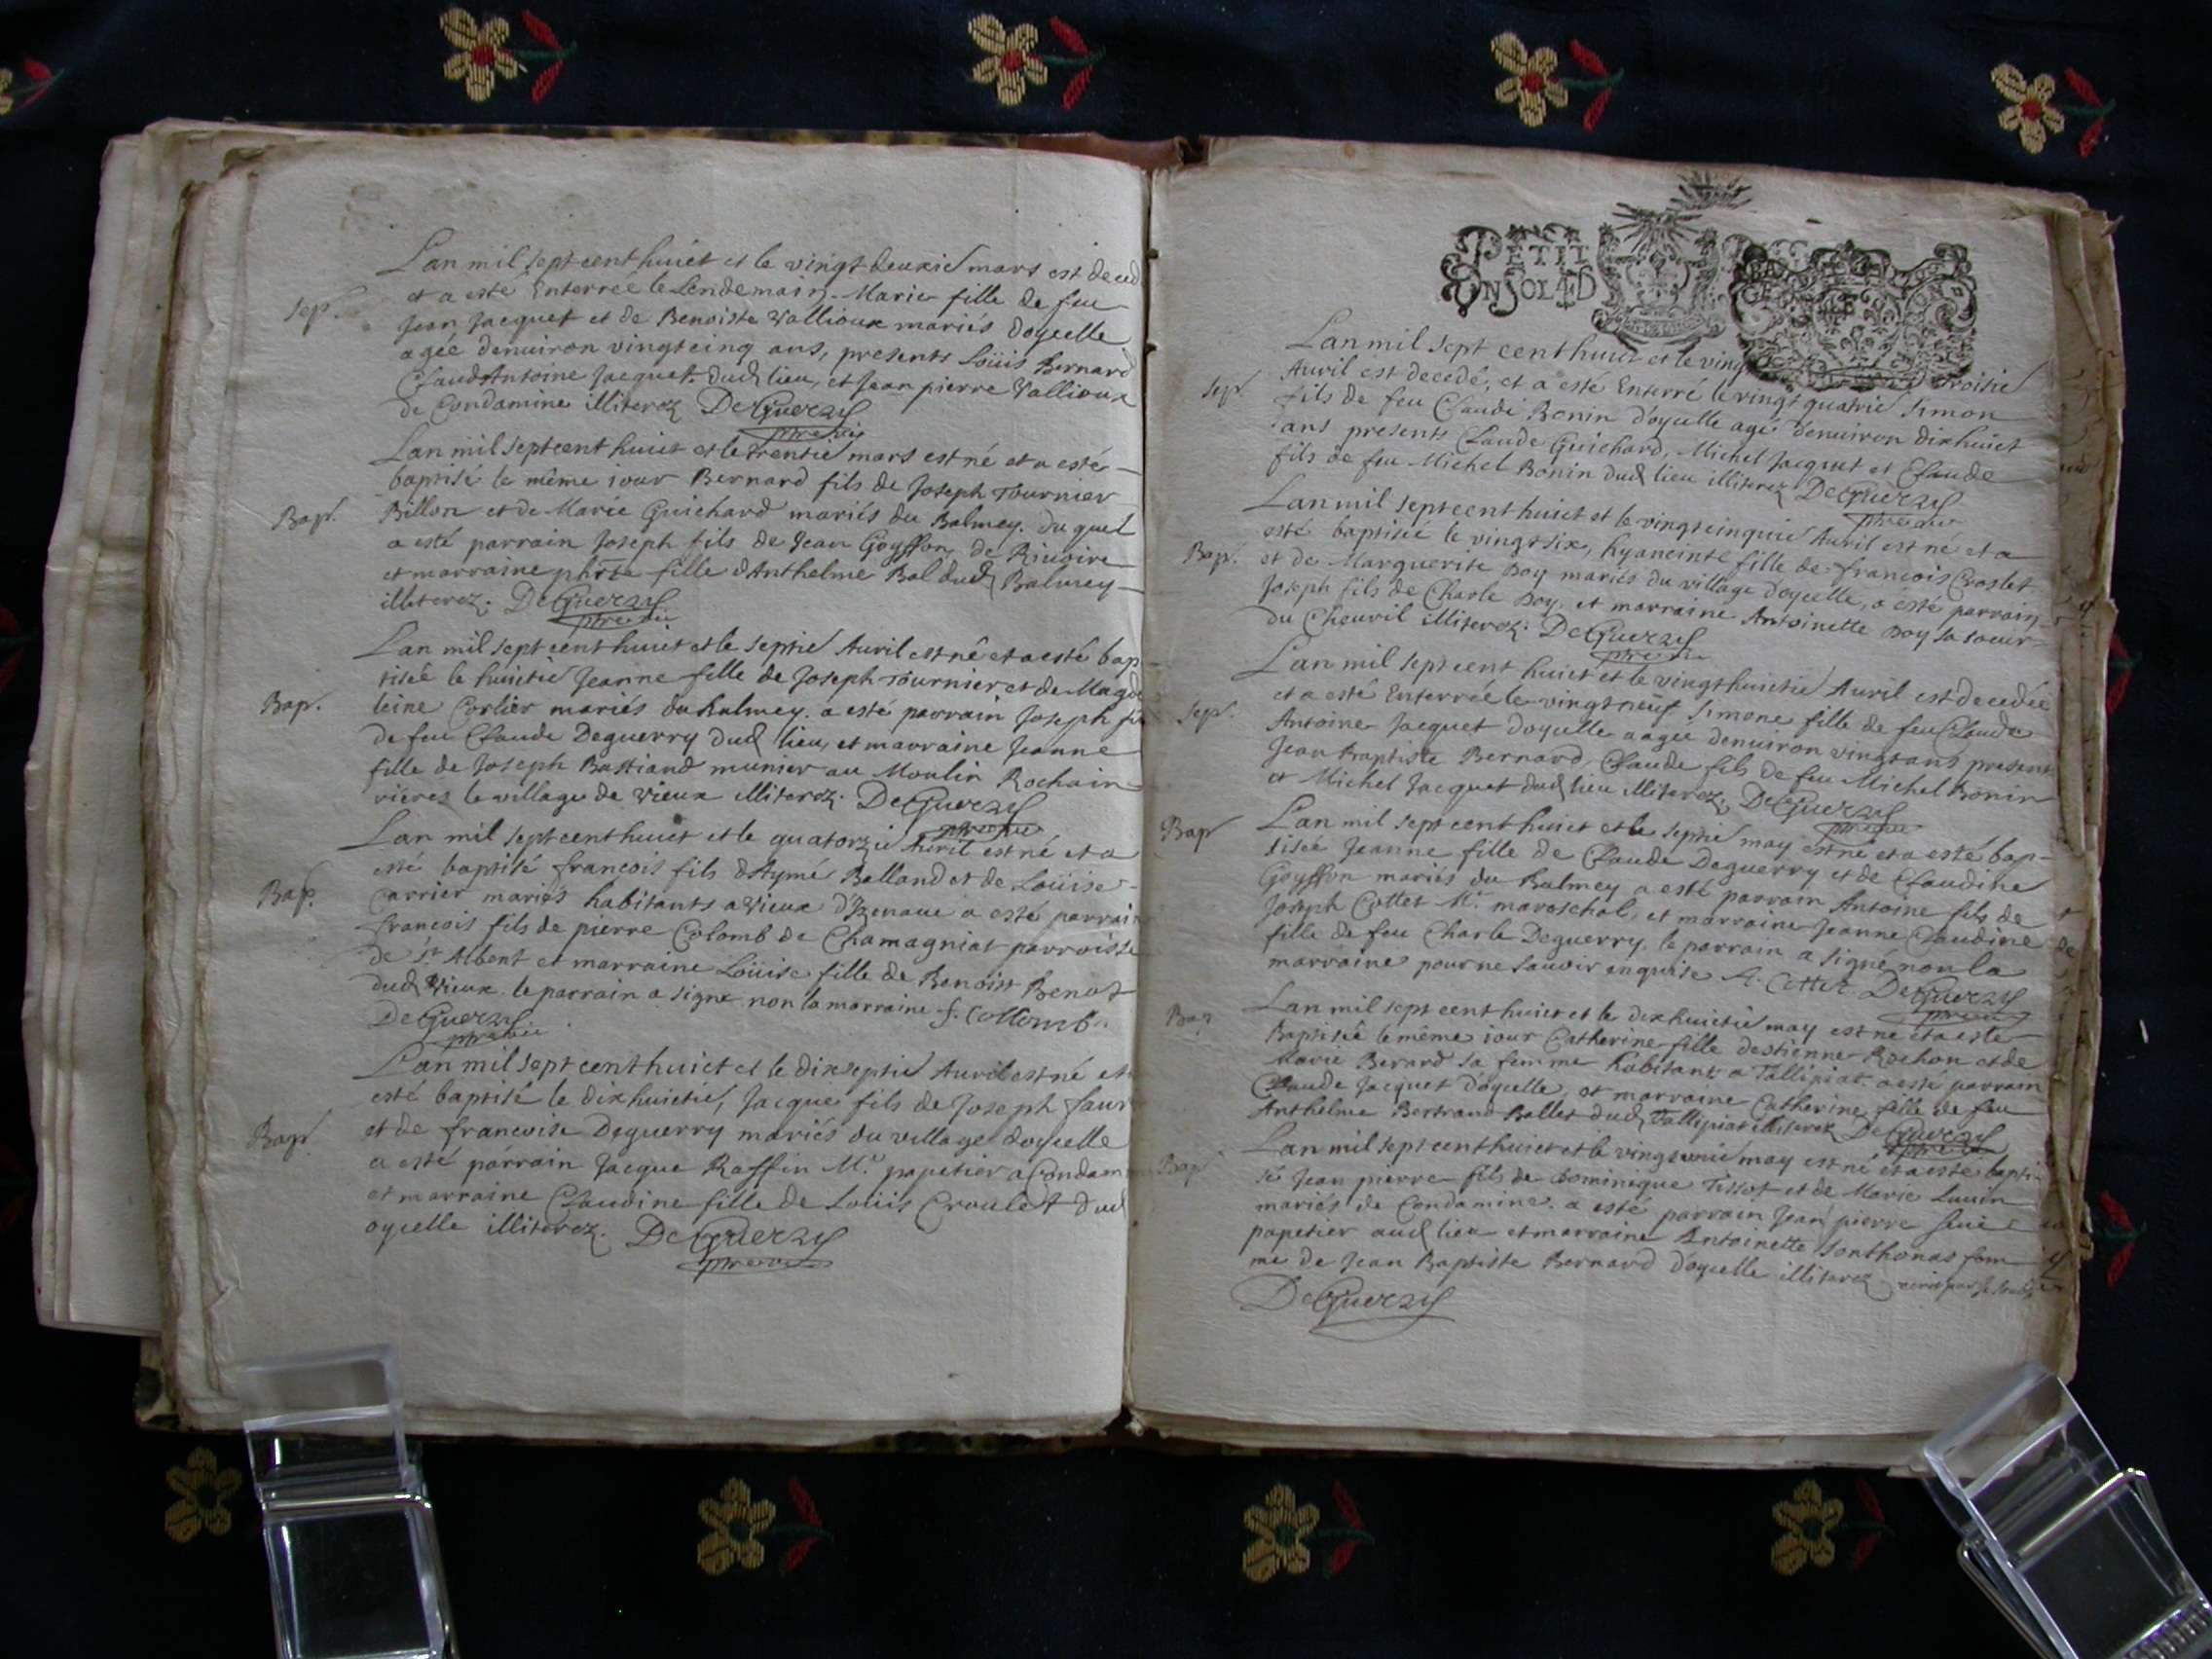 Lan mil sept cent huict et le vingt deuxie mars est deced
Sep.
et a esté Enterreé le Lendemain Marie fille de feu
Jean Jacquet et de Benoiste Vallioux mariés doyuelle
agéé denuiron vingtcinq ans, presents Loüis Bernard
Claud Antoine Jacquet dud lieu, et Jean pierre Vallioux
de Condamine illiterez DeGuerry
Lan mil sept cent huict et le trentie mars est né et a esté
baptisé le même iour Bernard fils de Joseph Tournier
Bap.
Billon et de Marie Guichard mariés du Balmey. du quel
a esté parrain Joseph fils de Jean Goyffon de Riuoire
et marraine fille dAnthelme Bal dud Balmey
illiterez. DeGuerry
Lan mil sept cent huict et le septie Auril est né et a esté bap
tiséé le huictie Jeanne fille de Joseph Tournier et de Magde
Bap.
leine Carlier mariés du Balmey. a esté parrain Joseph fils
de feu Claude Deguerry dud lieu, et marraine Jeanne
fille de Joseph Bastiand munier au Moulin Rochain
rieres le village de Vieux illiterez. DeGuerry
Lan mil sept cent huict et le quatorzie Auril est né et a
esté baptisé francois fils dAymé Balland et de Loüise
Bap.
Carrier mariés habitants a Vieux dIzenaue a esté parrain
francois fils de pierre Colomb de Chamagniat parroisse
de St Albent et marraine Loüise fille de Benoist Benot
dud Vieux. le parrain a signe non la marraine f. Collomb.
DeGuerry
Lan mil sept cent huict et le dixseptie Auril est né et
esté baptisé le dixhuictie, Jacque fils de Joseph faur
Bap.
et de francoise Deguerry mariés du village doyuelle
a esté parrain Jacque Raffin Mr. papetier a Condamine
et marraine Claudine fille de Loüis Croulet dud
oyuelle illiterez. DeGuerry
PETIT
UN SOL
Lan mil sept cent huict et le vingt troisie
Auril est decedé, et a esté Enterré le vingt quatrie Simon
Sep.
fils de feu Claude Bonin doyuelle agé denuiron dixhuict
ans presents Claude Guichard, Michel Jacquet et Claude
fils de feu Michel Bonin dud lieu illiterez DeGuerry
Lan mil sept cent huict et le vingtcinquie Auril est né et a
esté baptiséé le vingtsix, hyancinte fille de francois Croslet
Bap.
et de Marguerite Boy mariés du village doyuelle, a esté parrain
Joseph fils de Charle Boy, et marraine Antoinette Boy sa soeur
du Cheuril illiterez. DeGuerry
Lan mil sept cent huict et le vingthuictie Auril est decedéé
et a esté Enterréé le vingtneuf Simone fille de feu Claude
Sep.
Antoine Jacquet doyuelle aagéé denuiron vingtans present
Jean Baptiste Bernard, Claude fils de feu Michel Bonin
et Michel Jacquet dud lieu illiterez. DeGuerry
Bap
Lan mil sept cent huict et le septie may est né et a esté bap-
tiséé Jeanne fille de Claude Deguerry et de Claudine
Goyffon mariés du Balmey a esté parrain Antoine fils de
Joseph Cottet Mr. mareschal, et marraine Jeanne Claudine
fille de feu Charle Deguerry, le parrain a signé non la
marraine pour ne sauoir enquise A. Cottet DeGuerry
Lan mil sept cent huict et le dixhuictie may est né et a esté
Bap
Baptiséé le même iour Catherine fille destienne Rochon et de
Marie Berard sa femme habitant a Tallipiat. a esté parrain
Claude Jacquet doyuelle, et marraine Catherine fille de feu
Anthelme Bertrand Ballet dud Tallipiat illiterez DeGuerry
Lan mil sept cent huict et le may est né et a esté bapti
Bap
sé Jean pierre fils de Dominique Tissot et de Marie
mariés de Condamine. a esté parrain Jean pierre
papetier aud lieu et marraine Antoinette Sonthonas fem
me de Jean Baptiste Bernard doyuelle illiterez
DeGuerry